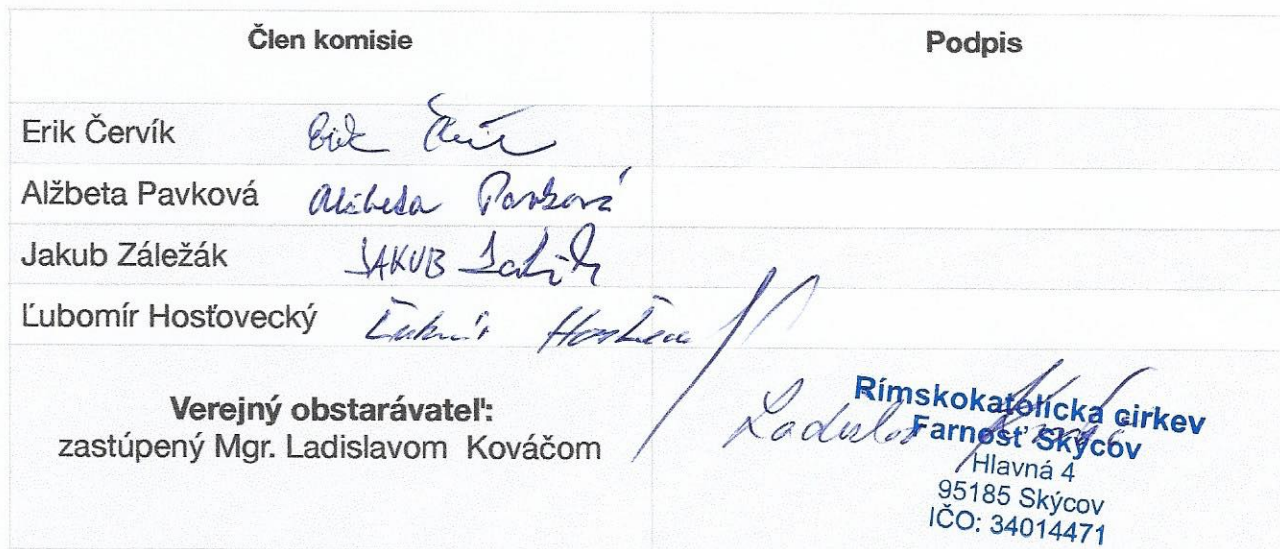 Člen komisie
Podpis
Erik Červík
Alžbeta Pavková Alžbeta Pavková
Jakub Záležák JAKUB
Ľubomír Hosťovecký
Verejný obstarávateľ:
zastúpený Mgr. Ladislavom Kováčom
Ladislav
Rímskokatolícka cirkev
Farnosť Skýcov
Hlavná 4
95185 Skýcov
IČO: 34014471